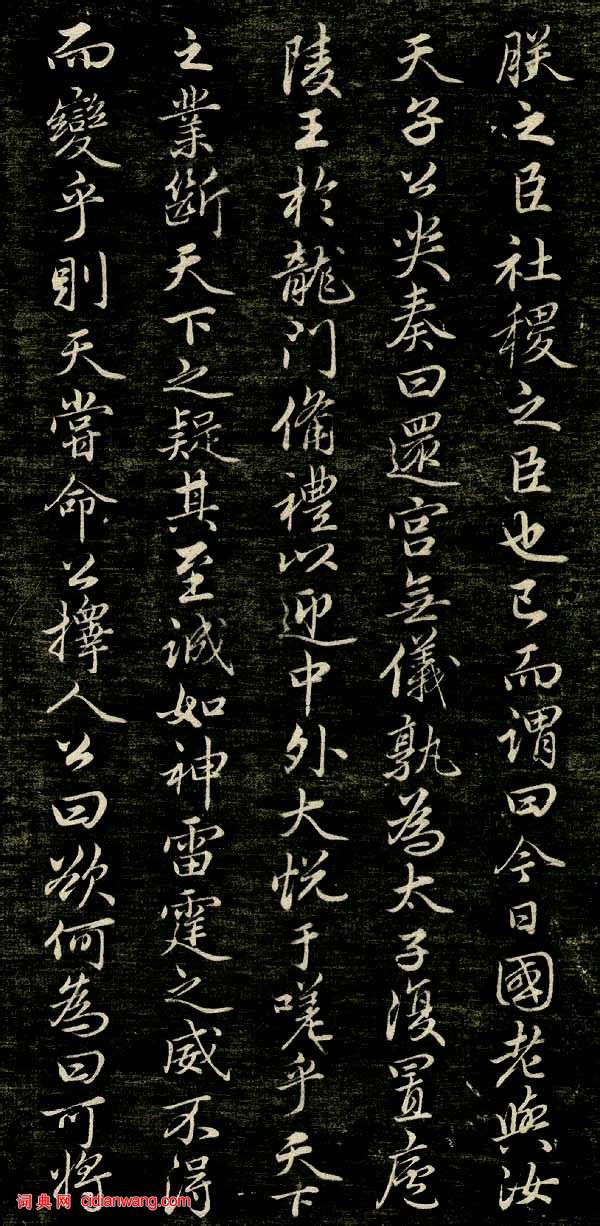 朕之臣社稷之臣也已而谓曰今日國老與汝
天子公哭奏曰還宫無儀孰為太子復置廬
陵王於龍門備禮以迎中外大悦于嗟乎天下
之業斷天下之疑其至誠如神雷霆之威不得
而變乎則天嘗命公擇人公曰欲何為曰可将
词典网 cidianwang.com